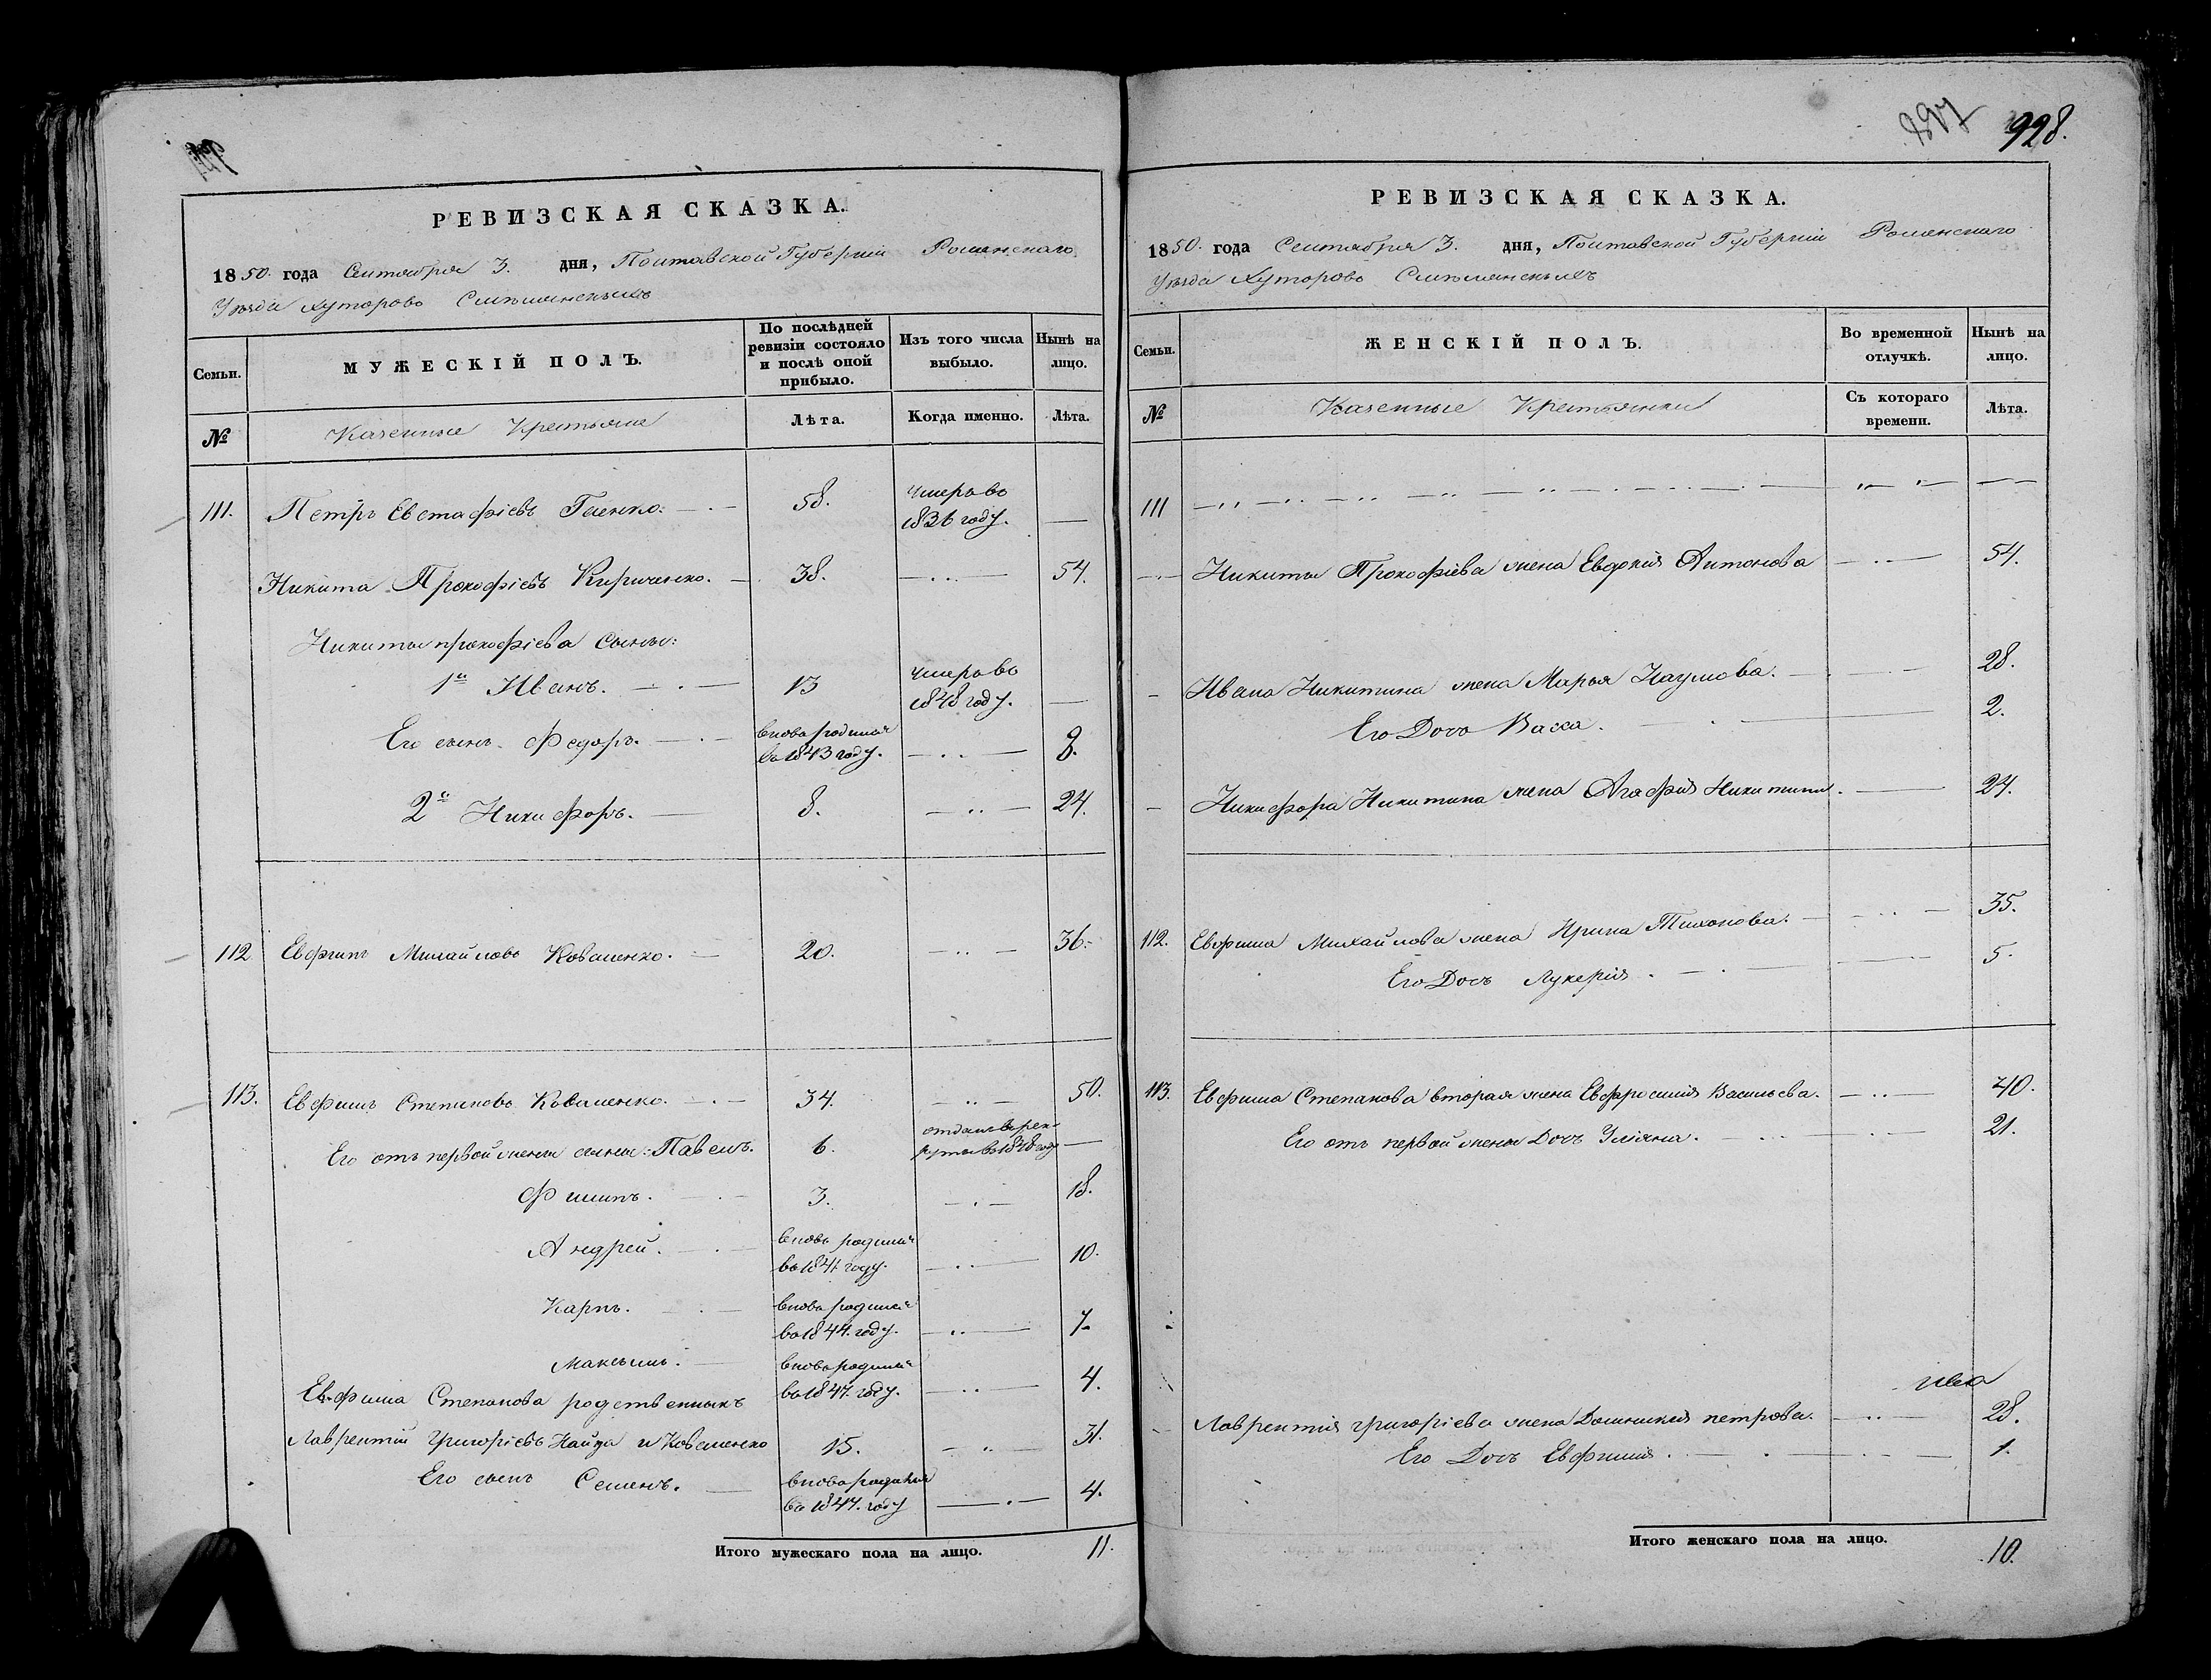 РЕВИЗСКАЯ СКАЗКА.
1850. года Сентября 3. дня, Полтавской Губерніи Роменскаго
Уѣзда Хуторовъ
Семьи.
МУЖЕСКІЙ ПОЛЪ.
По послѣдней ревизіи состояло и послѣ оной прибыло.
Изъ того числа выбыло.
Нынѣ на лицо.
№
Казенные Крестьяне
Лѣта.
Когда именно.
Лѣта.
111. Петръ Евстафіевъ 58. Умеръ въ 1836 году. —
Никита Прокофіевъ Кириченко. 38. — 54.
Никиты прокофіева сыны:
1й Иванъ. 13 Умеръ въ 1848 году. —
Его сынъ Федоръ. вновь родился въ 1843 году. — 8.
2й Никифоръ. 8. — 24.
112 Евфимъ Михайловъ Коваленко. 20. — 36.
113. Евфимъ Степановъ Коваленко. 34. — 50.
Его отъ первой жены сыны: Павелъ. 6. отданъ въ рекруты въ 1848 году —
Филипъ. 3. — 18.
Андрей. вновь родился въ 1841 году. — 10.
Карпъ. вновь родился въ 1844. году. — 7.
Максимъ. вновь родился въ 1847. году. — 4.
Евфима Степанова родственникъ
Лаврентій Григоріевъ Найда и Коваленко 15. — 31.
Его сынъ Семенъ. вновь родился въ 1847. году — 4.
Итого мужескаго пола на лицо. 11.
998.
РЕВИЗСКАЯ СКАЗКА.
1850. года Сентября 3. дня, Полтавской Губерніи Роменскаго
Уѣзда Хуторовъ
Семьи.
ЖЕНСКІЙ ПОЛЪ.
Во временной отлучкѣ.
Нынѣ на лицо.
№
Казенные Крестьянки
Съ котораго времени.
Лѣта.
111
Никиты Прокофіева жена Евдокія Антонова — 54.
Ивана Никитина жена Марья Наумова. — 28.
Его Дочь Васса. — 2.
Никифора Никитина жена Агафія Никитина. — 24.
112. Евфима Михайлова жена Ирина Тихонова. — 35.
Его Дочь Лукерія. — 5.
113. Евфима Степанова вторая жена Евфросинія Васильева. — 40.
Его отъ первой жены Дочь Уліяна. — 21.
Лаврентія григоріева жена Домникія петрова. — 28.
Его Дочь Евфимія. — 1.
Итого женскаго пола на лицо. 10.